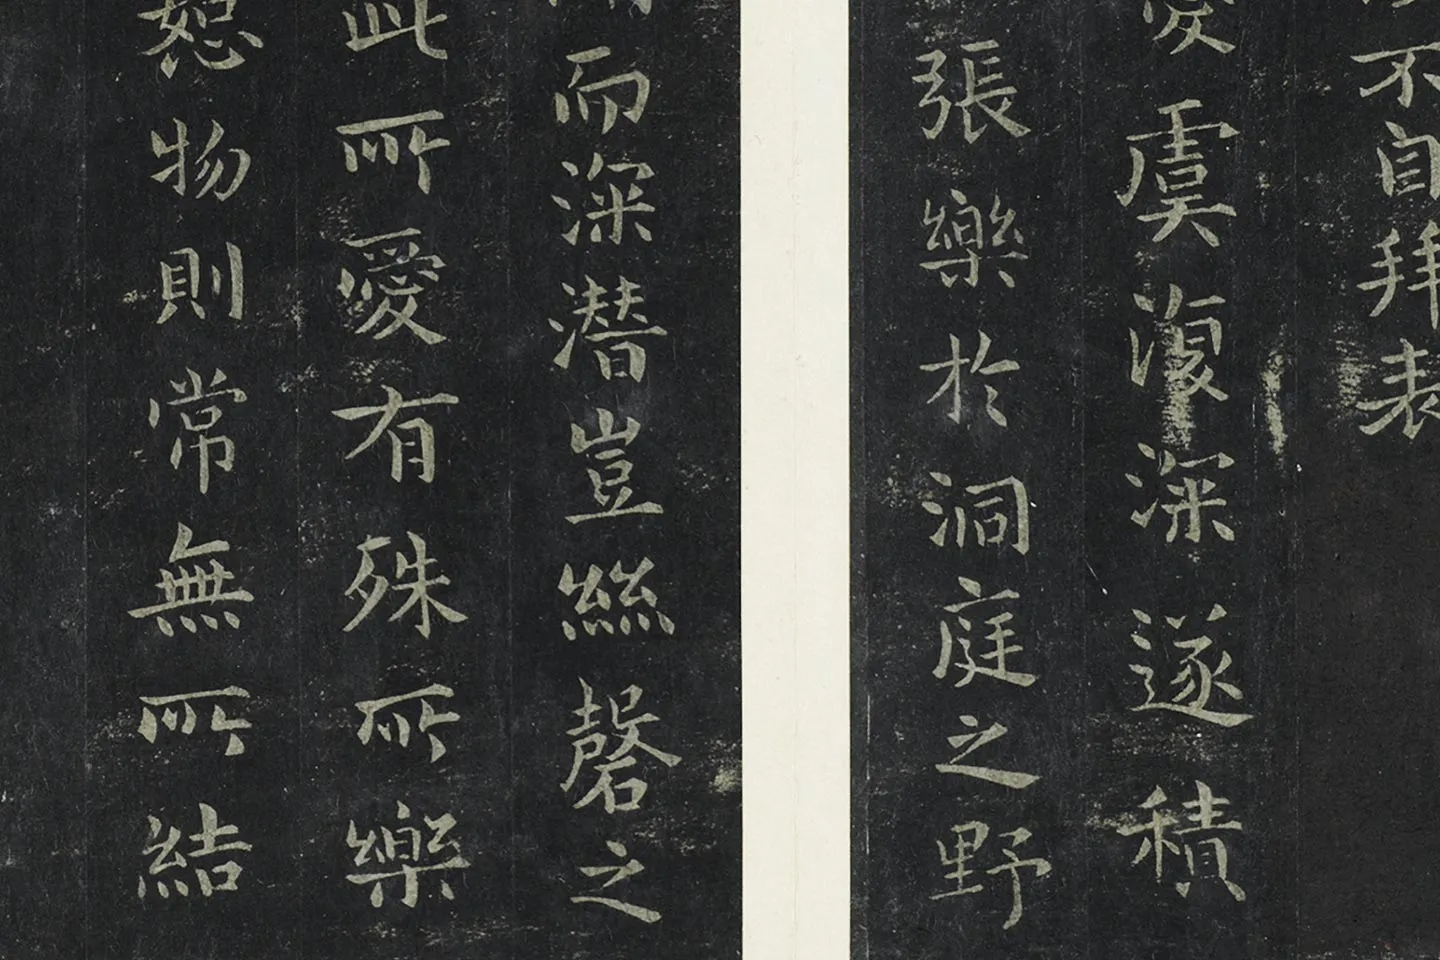 不自拜表
虞復深遂積
張樂於洞庭之野
而深潛豈絲磬之
此所愛有殊所樂
恕物則常無所結